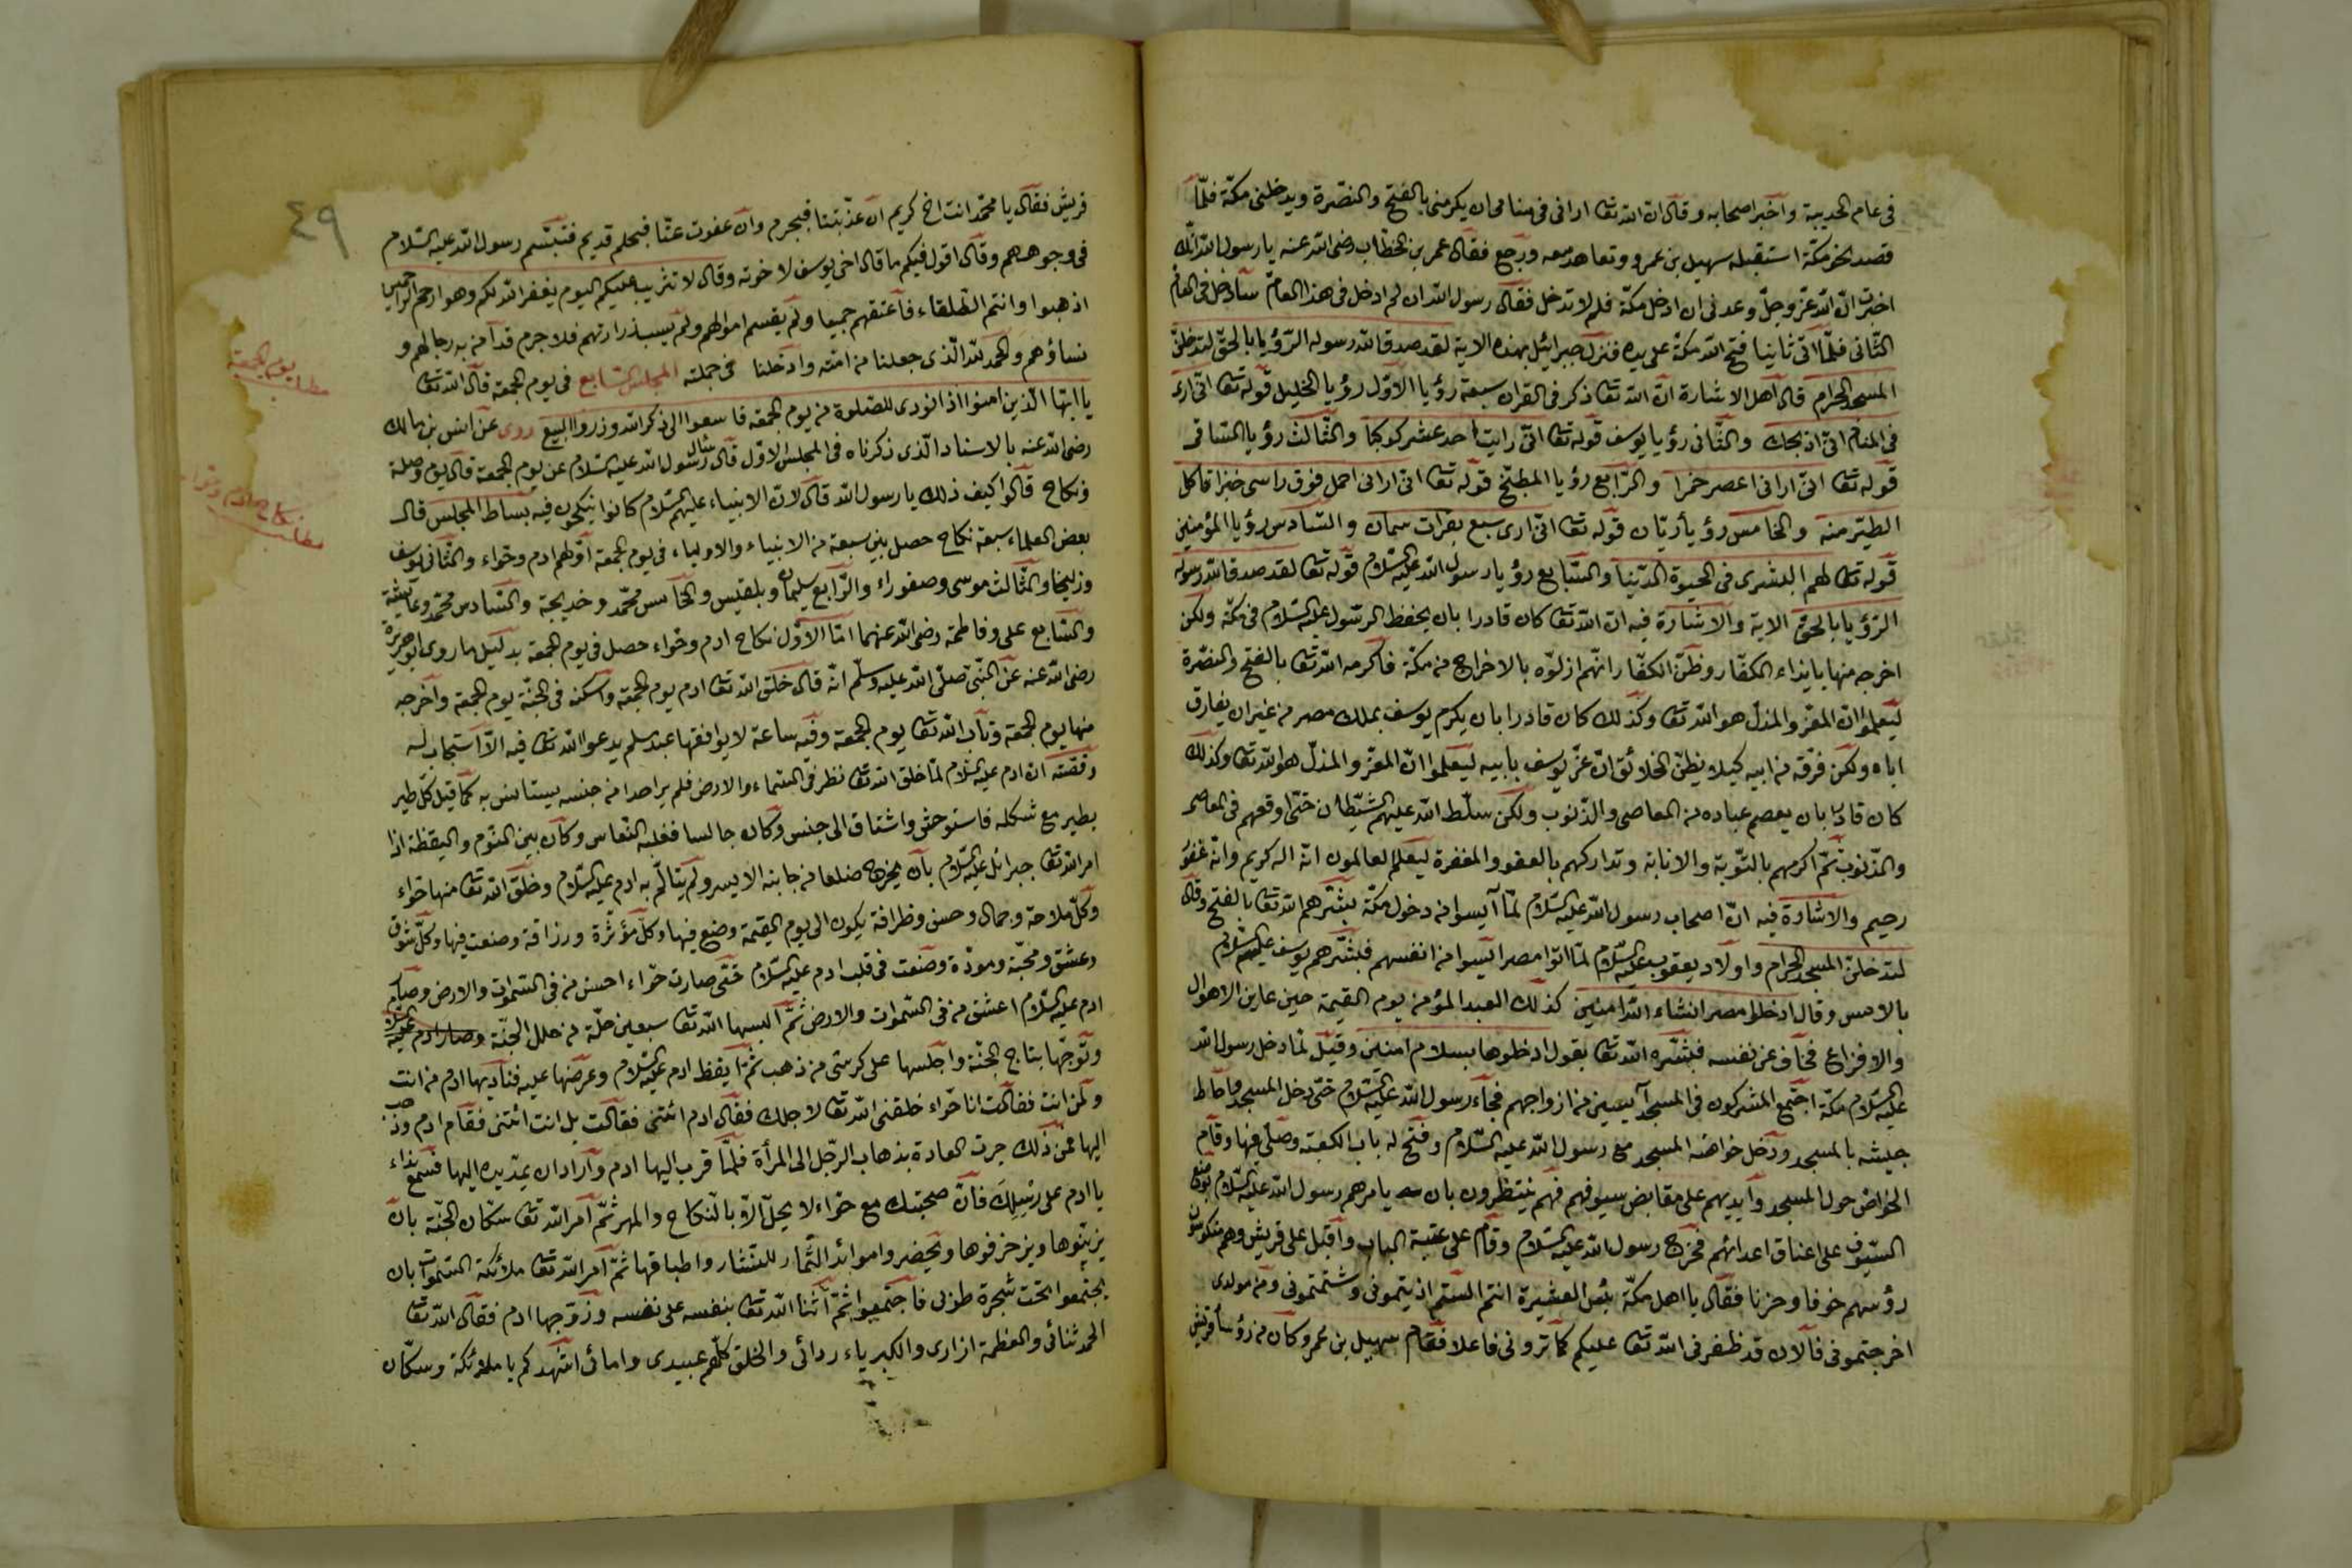 فى عام الحديبية واخبر اصحابه وقال ان الله تعا ارانى فى منامى ان يكرمنى بالفتح والنصرة ويدخلنى مكة فلما
قصد نحو مكة استقبله سهيل بن عمرو وتعاهد معه ورجع فقال عمر بن الخطاب رضى الله عنه يا رسول الله انك
اخبرت ان الله عز وجل وعدنى ان ادخل مكة فلم لا تدخل فقال رسول الله ان لم ادخل فى هذا العام سادخل فى العام
الثانى فلما اتى ثانيا فتح الله مكة على يده فنزل جبرائيل بهذه الاية لقد صدق الله رسوله الرؤيا بالحق لتدخلن
المسجد الحرام قال اهل الاشارة ان الله تعا ذكر فى القران سبعة رؤيا الاول رؤيا الخليل قوله تعا انى ارى
فى المنام انى اذبحك والثانى رؤيا يوسف قوله تعا انى رايت احد عشر كوكبا والثالث رؤيا الساقى
قوله تعا انى ارانى اعصر خمرا والرابع رؤيا المطبخ قوله تعا انى ارانى احمل فوق راسى خبزا تاكل
الطير منه والخامس رؤيا ريان قوله تعا انى ارى سبع بقرات سمان والسادس رؤيا المؤمنين
قوله تعا لهم البشرى فى الحيوة الدنيا والسابع رؤيا رسول الله عليه السلام قوله تعا لقد صدق الله رسوله
الرؤيا بالحق الاية والاشارة فيه ان الله تعا كان قادرا بان يحفظ الرسول عليه السلام فى مكة ولكن
اخرجه منها بايذاء الكفار وظن الكفار انهم ازلوه بالاخراج من مكة فاكرمه الله تعا بالفتح والنصرة
ليعلموا ان المعز والمذل هو الله تعا وكذلك كان قادرا بان يكرم يوسف بملك مصر من غير ان يفارق
اباه ولكن فرقه من ابيه كيلا يظن الخلائق ان عز يوسف بابيه ليعلموا ان المعز والمذل هو الله تعا وكذلك
كان قادرا بان يعصم عباده من المعاصى والذنوب ولكن سلط الله عليهم الشيطان حتى اوقعهم فى المعاصى
والذنوب ثم اكرمهم بالتوبة والانابة وتداركهم بالعفو والمغفرة ليعلم العالمون انه اله كريم وانه غفور
رحيم والاشارة فيه ان اصحاب رسول الله عليه السلام لما آيسوا من دخول مكة بشرهم الله تعا بالفتح وقال
لتدخلن المسجد الحرام واولاد يعقوب عليه السلام لما اتوا مصر ايسوا من انفسهم فبشرهم يوسف عليه السلام
بالامس وقال ادخلوا مصر انشاء الله امنين كذلك العبد المؤمن يوم القيمة حين عاين الاهوال
والافزاع فخاف عن نفسه فبشره الله تعا بقول ادخلوها بسلام امنين وقيل لما دخل رسول الله
عليه السلام مكة اجتمع المشركون فى المسجد آيسين من ازواجهم فجاء رسول الله عليه السلام حتى دخل المسجد واحاط
جيشه بالمسجد ودخل خواصه المسجد مع رسول الله عليه السلام وفتح له باب الكعبة وصلى فيها وقام
الخواص حول المسجد وايديهم على مقابض سيوفهم فهم ينتظرون بان يامرهم رسول الله عليه السلام بوضع
السيوف على اعناق اعدائهم فخرج رسول الله عليه السلام وقام على عتبة الباب واقبل على قريش وهم منكوسون
رؤسهم خوفا وحزنا فقال يا اهل مكة بئس العشيرة انتم الستم اذيتمونى وشتمتمونى ومن مولدى
اخرجتمونى فالان قد ظفرنى الله تعا عليكم كما ترونى فاعلا فقام سهيل بن عمرو وكان من رؤساء قريش
٤٩
قريش فقال يا محمد انت اخ كريم ان عذبتنا فبجرم وان عفوت عنا فبحلم قديم فتبسم رسول الله عليه السلام
فى وجوههم وقال اقول فيكم ما قال اخى يوسف لاخوته وقال لا تثريب عليكم اليوم يغفر الله لكم وهو ارحم الراحمين
اذهبوا وانتم الطلقاء فاعتقهم جميعا ولم يقسم اموالهم ولم يسب ذراريهم فلا جرم قد امن به رجالهم و
نساؤهم والحمد لله الذى جعلنا من امته وادخلنا فى جملته المجلس السابع فى يوم الجمعة قال الله تعا
يا ايها الذين امنوا اذا نودى للصلوة من يوم الجمعة فاسعوا الى ذكر الله وذروا البيع روى عن انس بن مالك
رضى الله عنه بالاسناد الذى ذكرناه فى المجلس الاول قال سئل رسول الله عليه السلام عن يوم الجمعة قال يوم وصلة
ونكاح قالوا كيف ذلك يا رسول الله قال لان الانبياء عليهم السلام كانوا ينكحون فيه بساط المجلس قال
بعض العلماء سبعة نكاح حصل بين سبعة من الانبياء والاولياء فى يوم الجمعة اولهم ادم وحواء والثانى يوسف
وزليخا والثالث موسى وصفوراء والرابع سليمان وبلقيس والخامس محمد وخديجة والسادس محمد وعايشة
والسابع على وفاطمة رضى الله عنهما اما الاول نكاح ادم وحواء حصل فى يوم الجمعة بدليل ما روى ابو هريرة
رضى الله عنه عن النبى صلى الله عليه وسلم انه قال خلق الله تعا ادم يوم الجمعة واسكنه فى الجنة يوم الجمعة واخرجه
منها يوم الجمعة وتاب الله تعا يوم الجمعة وفيه ساعة لا يوافقها عبد مسلم يدعوا الله تعا فيه الا استجاب له
وقصته ان ادم عليه السلام لما خلق الله تعا نظر فى السماء والارض فلم ير احدا من جنسه يستانس به كما قيل كل طير
يطير مع شكله فاستوحش واشتاق الى جنس وكان جالسا فغلبه النعاس وكان بين النوم واليقظة اذا
امر الله تعا جبرائل عليه السلام بان يخرج ضلعا من جانبه الايسر ولم يتالم به ادم عليه السلام وخلق الله تعا منها حواء
وكل ملاحة وجمال وحسن وظرافة يكون الى يوم القيمة وضع فيها وكل مؤثرة ورزاقة وصنعت فيها وكل شوق
وعشق ومحبة ومودة وصنعت فى قلب ادم عليه السلام حتى صارت حواء احسن من فى السموات والارض وصار
ادم عليه السلام اعشق من فى السموات والارض ثم البسها الله تعا سبعين حلة من حلل الجنة وصار ادم عليه السلام
وتوجها بتاج الجنة واجلسها على كرسى من ذهب ثم ايقظ ادم عليه السلام وعرضها عليه فناديها ادم من انت
ولمن انت فقالت انا حواء خلقنى الله تعا لاجلك فقال ادم ائتنى فقالت بل انت ائتنى فقام ادم وذهب
اليها فمن ذلك جرت العادة بذهاب الرجل الى المرأة فلما قرب اليها ادم واراد ان يمد يده اليها فسمع نداء
يا ادم على رسلك فان صحبتك مع حواء لا يحل الا بالنكاح والمهر ثم امر الله تعا سكان الجنة بان
يزينوها ويزخرفوها ويحضروا موائد الثمار للنثار واطباقها ثم امر الله تعا ملائكة السموات بان
يجتمعوا تحت شجرة طوبى فاجتمعوا ثم اثنا الله تعا بنفسه على نفسه وزوجها ادم فقال الله تعا
الحمد ثنائى والعظمة ازارى والكبرياء ردائى والخلق كلهم عبيدى وامائى اشهدكم يا ملائكة وسكان
مطلب يوم الجمعة
مطلب نكاح ادم وحواء